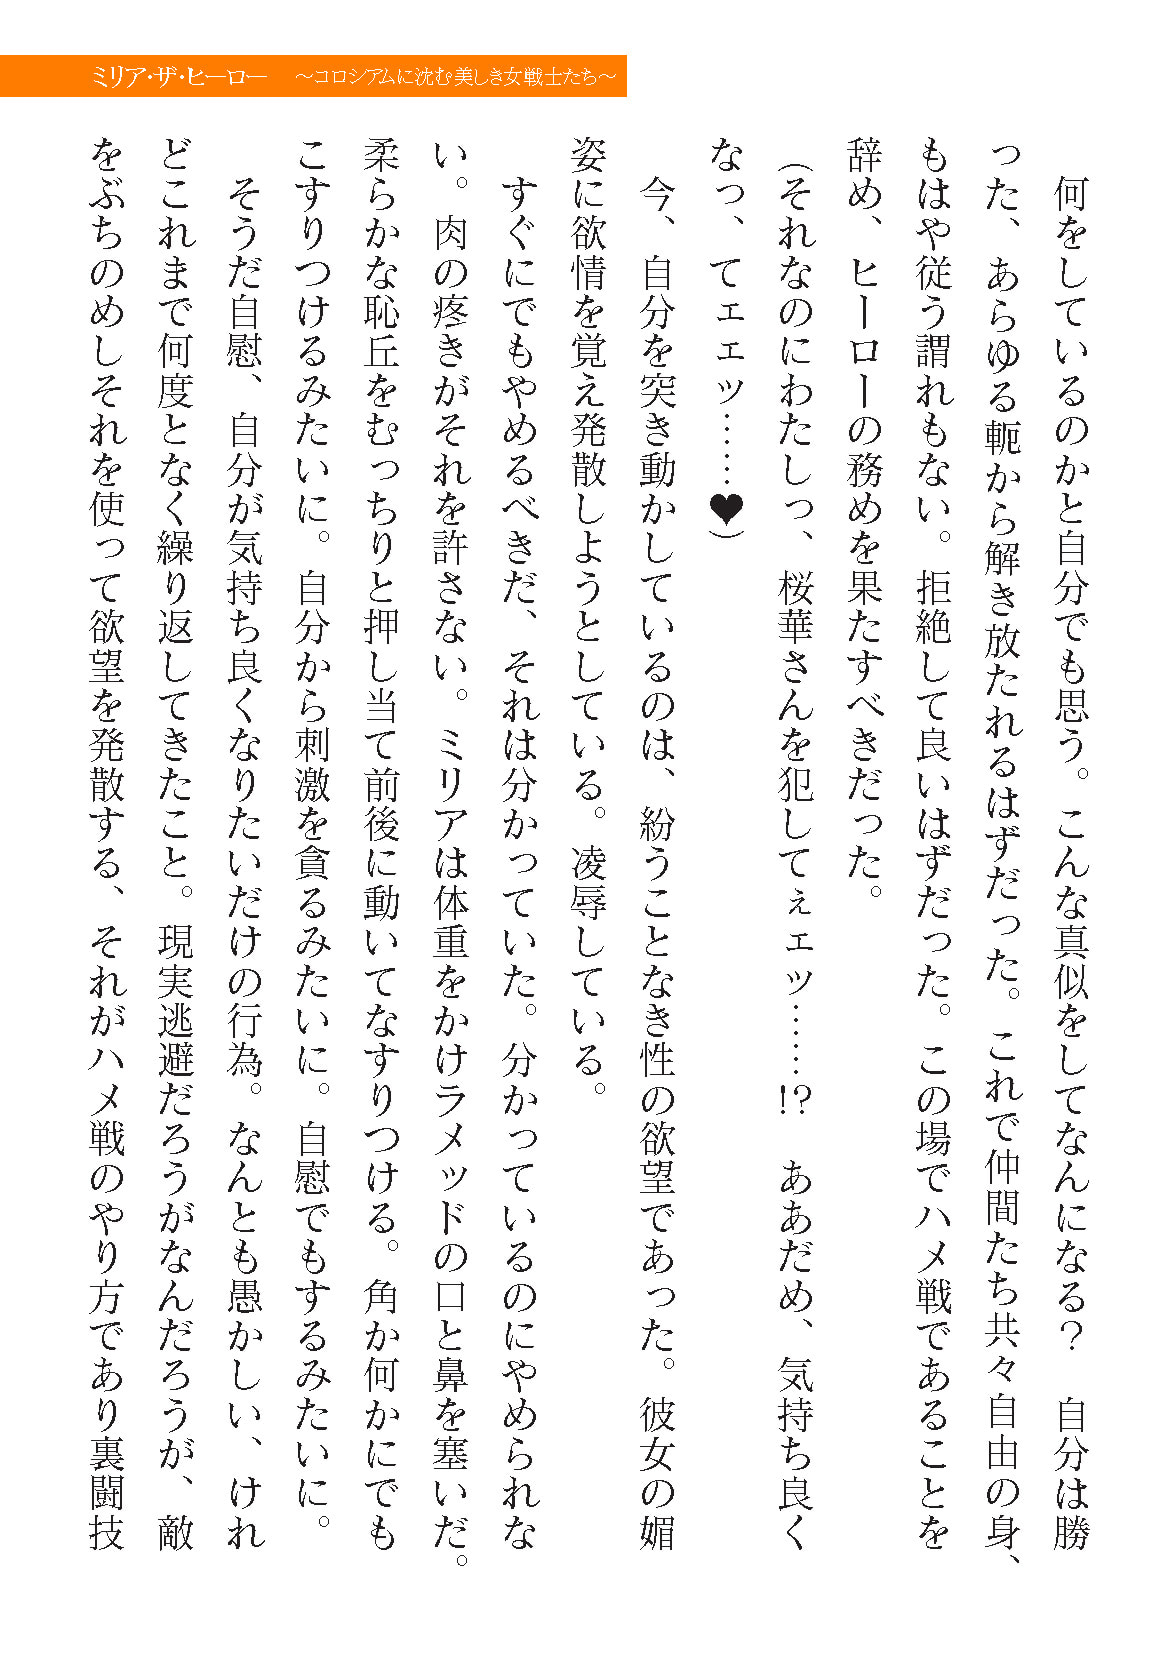 ミリア・ザ・ヒーロー　～コロシアムに沈む美しき女戦士たち～
　何をしているのかと自分でも思う。こんな真似をしてなんになる？　自分は勝
った、あらゆる軛から解き放たれるはずだった。これで仲間たち共々自由の身、
もはや従う謂れもない。拒絶して良いはずだった。この場でハメ戦であることを
辞め、ヒーローの務めを果たすべきだった。
（それなのにわたしっ、桜華さんを犯してぇェッ……!?　ああだめ、気持ち良く
なっ、てェェッ……♥）
　今、自分を突き動かしているのは、紛うことなき性の欲望であった。彼女の媚
姿に欲情を覚え発散しようとしている。凌辱している。
　すぐにでもやめるべきだ、それは分かっていた。分かっているのにやめられな
い。肉の疼きがそれを許さない。ミリアは体重をかけラメッドの口と鼻を塞いだ。
柔らかな恥丘をむっちりと押し当て前後に動いてなすりつける。角か何かにでも
こすりつけるみたいに。自分から刺激を貪るみたいに。自慰でもするみたいに。
　そうだ自慰、自分が気持ち良くなりたいだけの行為。なんとも愚かしい、けれ
どこれまで何度となく繰り返してきたこと。現実逃避だろうがなんだろうが、敵
をぶちのめしそれを使って欲望を発散する、それがハメ戦のやり方であり裏闘技